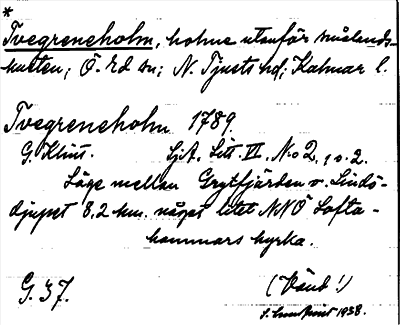 *
Tvegreneholm, holme utanför smålands-
kusten; Ö. Ed sn; N. Tjusts hd; Kalmar l.
Tvegreneholm 1789.
G. Klint. Sj.A. Litt. VI. No 2, 1 o. 2.
Läge mellan Grytfjärden o. Lindö-
djupet 8,2 km. något litet NNÖ Lofta-
hammars kyrka.
G. 37. (Vänd!)
1938.